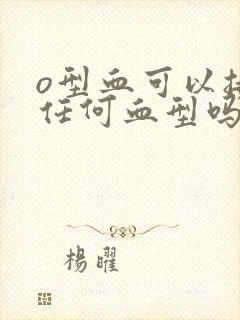 o型血可以
任何血型吗
楊曜